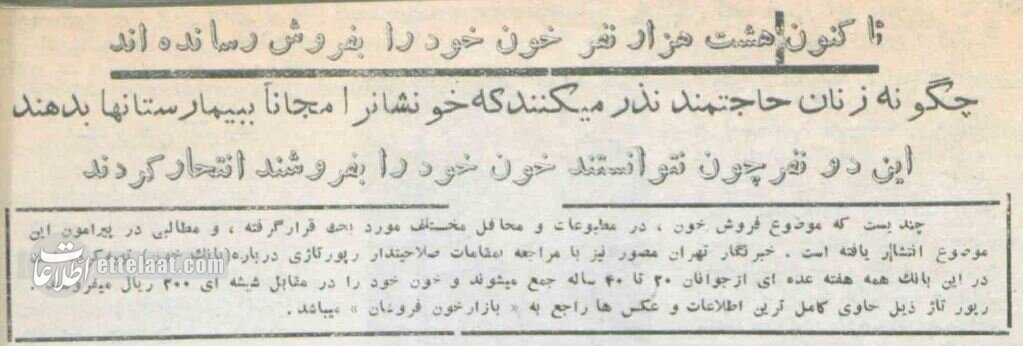 تا کنون هشت هزار نفر خون خود را بفروش رسانده اند
چگونه زنان حاجتمند نذر میکنند که خونشانرا مجاناً ببیمارستانها بدهند
این دو نفر چون نتوانستند خون خود را بفروشند انتحار کردند
چندیست که موضوع فروش خون ، در مطبوعات و محافل مختلف مورد بحث قرار گرفته ، و مطالبی در پیرامون این
موضوع انتشار یافته است . خبرنگار تهران مصور نیز با مراجعه بمقامات صلاحیتدار رپورتاژی درباره (بانک خون)
در این بانک همه هفته عده ای از جوانان ۲۰ تا ۴۰ ساله جمع میشوند و خون خود را در مقابل شیشه ای ۲۰۰ ریال
رپورتاژ ذیل حاوی کامل ترین اطلاعات و عکس ها راجع به « بازار خون فروشان » میباشد .
اطلاعات
ettelaat.com